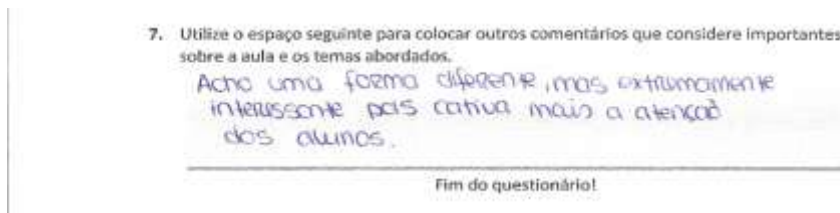 7. Utilize o espaço seguinte para colocar outros comentários que considere importantes
sobre a aula e os temas abordados.
Acho uma forma diferente, mas extremamente
interessante pois cativa mais a atenção
dos alunos.
Fim do questionário!